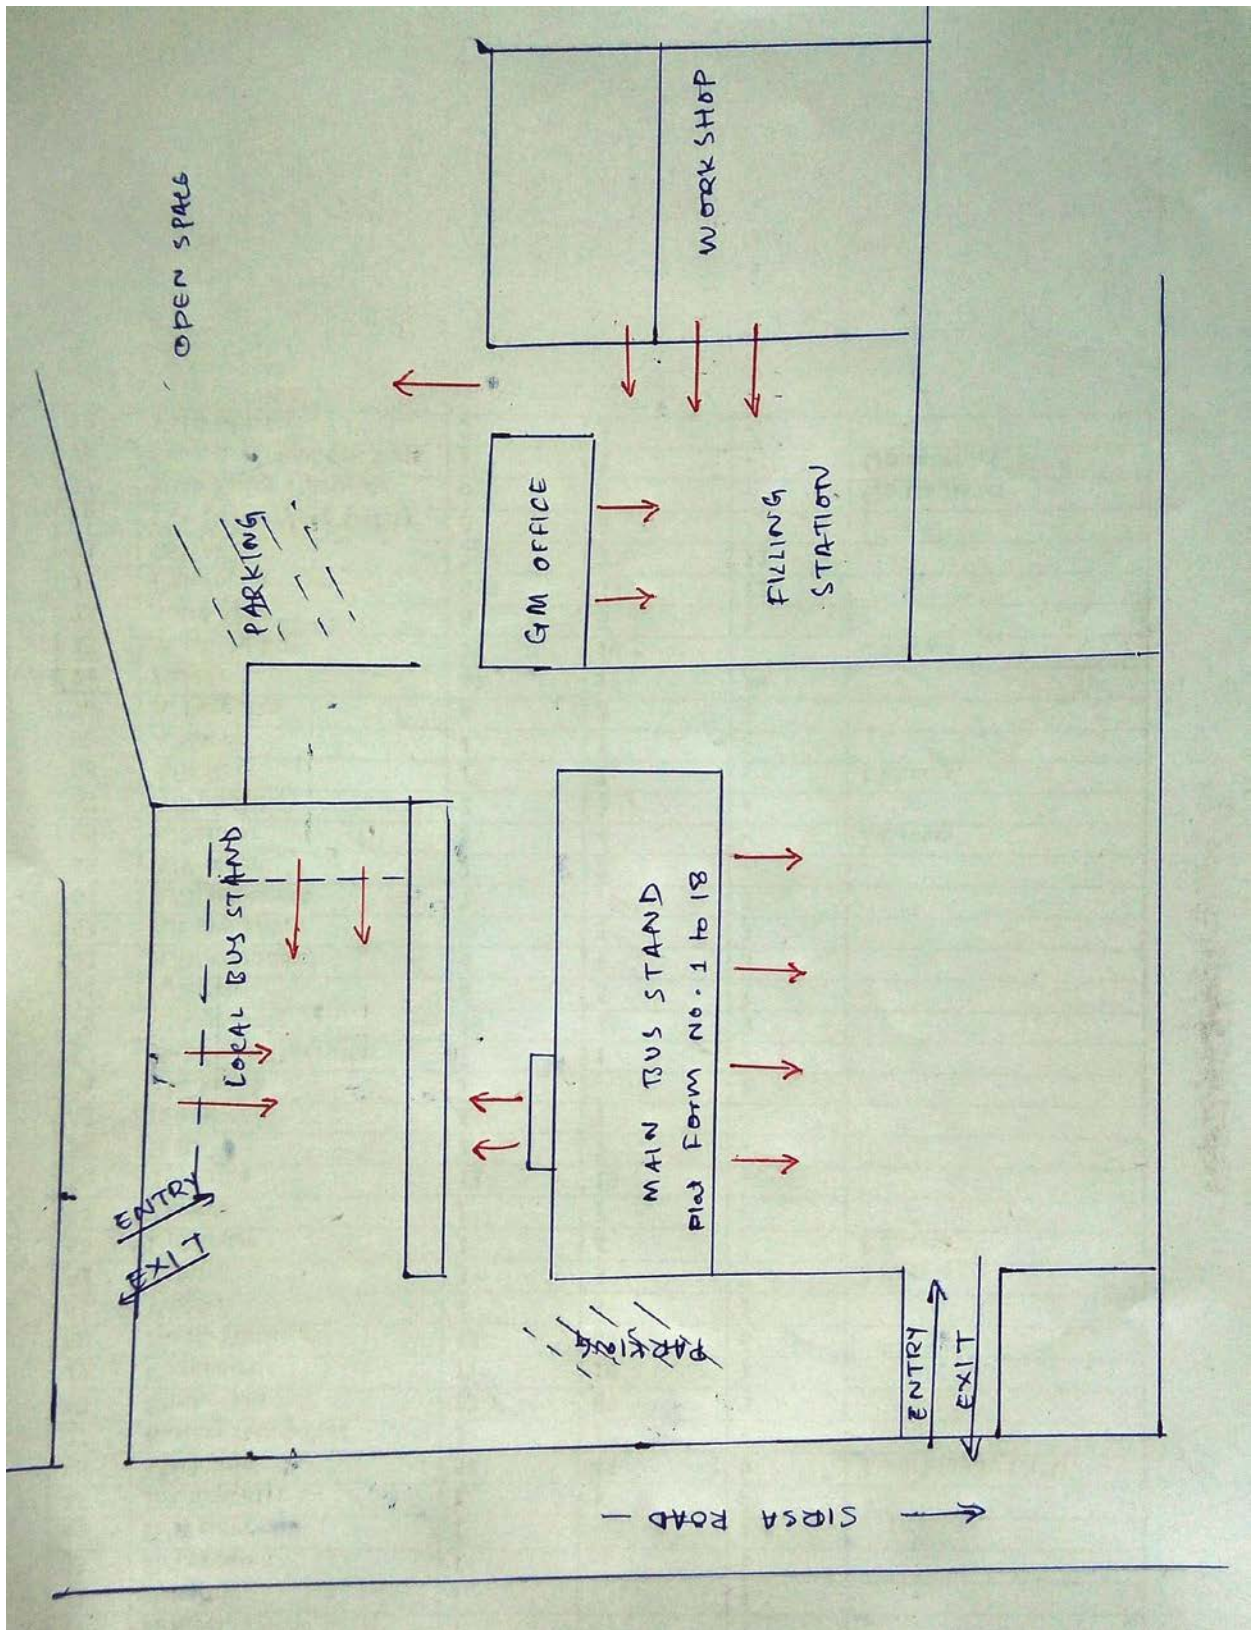 OPEN SPACE
WORK SHOP
PARKING
GM OFFICE
FILLING
STATION
LOCAL BUS STAND
MAIN BUS STAND
Plat Form No. 1 to 18
ENTRY
EXIT
PARKING
ENTRY
EXIT
SIRSA ROAD